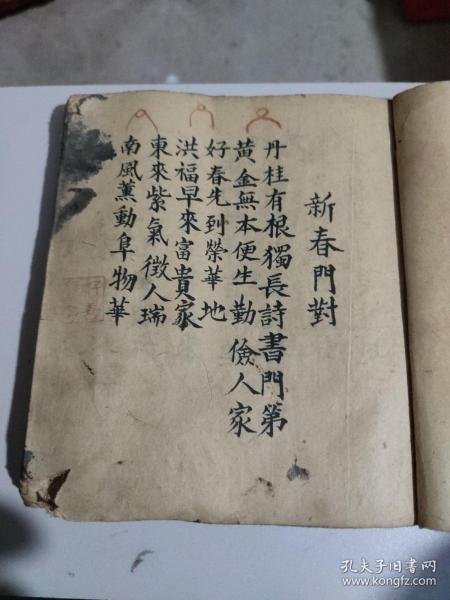 新春門對
丹桂有根獨長詩書門第
黃金無本便生勤儉人家
好春先到榮華地
洪福早來富貴家
東來紫氣徵人瑞
南風薰動阜物華
孔夫子旧书网
www.kongfz.com